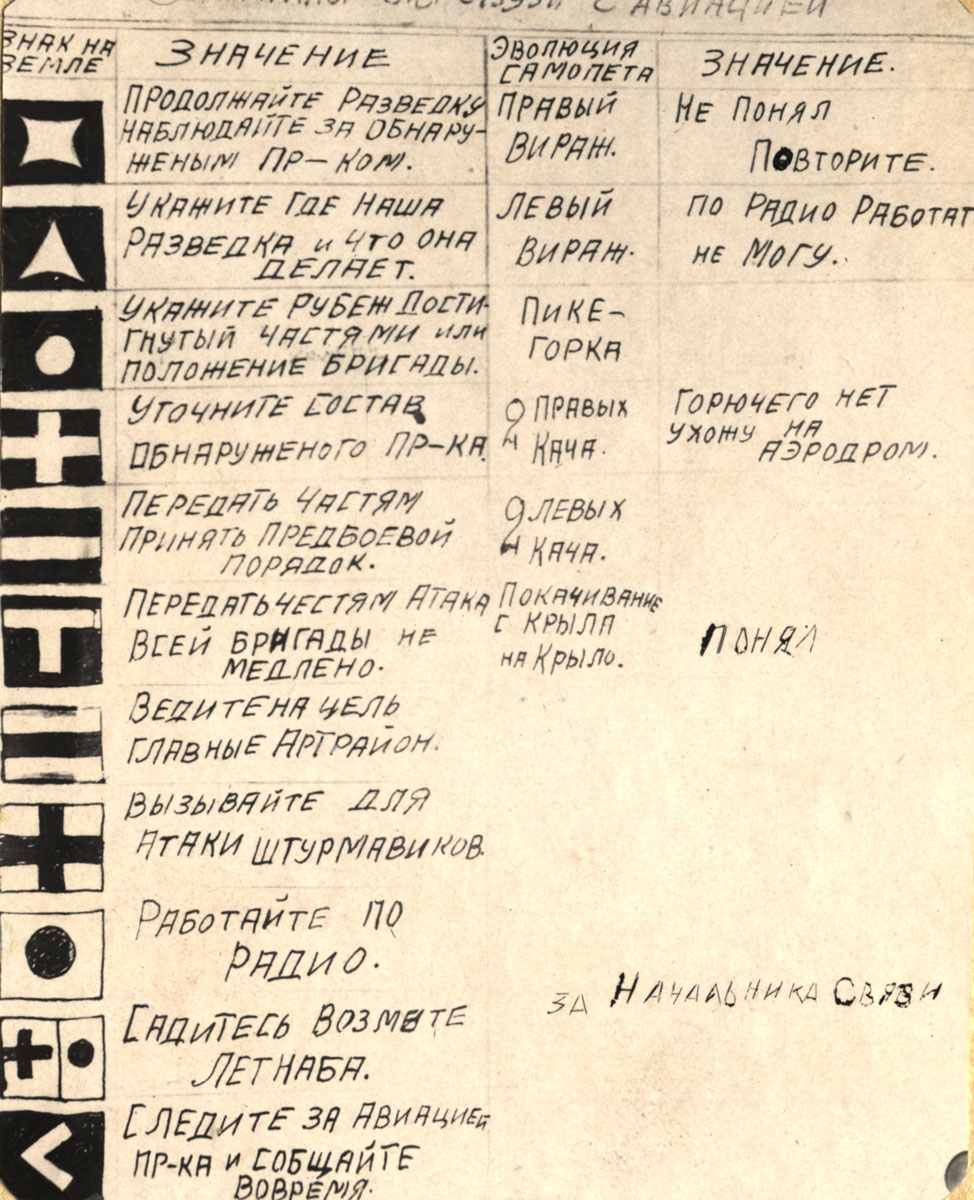 С АВИАЦИЕЙ
ЗНАК НА
ЗЕМЛЕ
ЗНАЧЕНИЕ
ЭВОЛЮЦИЯ
САМОЛЕТА
ЗНАЧЕНИЕ.
ПРОДОЛЖАЙТЕ РАЗВЕДКУ
НАБЛЮДАЙТЕ ЗА ОБНАРУ-
ЖЕНЫМ ПР-КОМ.
ПРАВЫЙ
ВИРАЖ.
НЕ ПОНЯЛ
ПОВТОРИТЕ.
УКАЖИТЕ ГДЕ НАША
РАЗВЕДКА И ЧТО ОНА
ДЕЛАЕТ.
ЛЕВЫЙ
ВИРАЖ.
ПО РАДИО РАБОТАТ
НЕ МОГУ.
УКАЖИТЕ РУБЕЖ ДОСТИ-
ГНУТЫЙ ЧАСТЯМИ ИЛИ
ПОЛОЖЕНИЕ БРИГАДЫ.
ПИКЕ-
ГОРКА
УТОЧНИТЕ СОСТАВ
ОБНАРУЖЕНОГО ПР-КА.
2 ПРАВЫХ
КАЧА.
ГОРЮЧЕГО НЕТ
УХОЖУ НА
АЭРОДРОМ.
ПЕРЕДАТЬ ЧАСТЯМ
ПРИНЯТЬ ПРЕДБОЕВОЙ
ПОРЯДОК.
2 ЛЕВЫХ
КАЧА.
ПЕРЕДАТЬ ЧЕСТЯМ АТАКА
ВСЕЙ БРИГАДЫ НЕ
МЕДЛЕНО.
ПОКАЧИВАНИЕ
С КРЫЛА
НА КРЫЛО.
ПОНЯЛ
ВЕДИТЕ НА ЦЕЛЬ
ГЛАВНЫЕ АРТРАЙОН.
ВЫЗЫВАЙТЕ ДЛЯ
АТАКИ ШТУРМАВИКОВ.
РАБОТАЙТЕ ПО
РАДИО.
ЗА НАЧАЛЬНИКА СВЯЗИ
САДИТЕСЬ ВОЗМИТЕ
ЛЕТНАБА.
СЛЕДИТЕ ЗА АВИАЦИЕЙ
ПР-КА И СОБЩАЙТЕ
ВОВРЕМЯ.